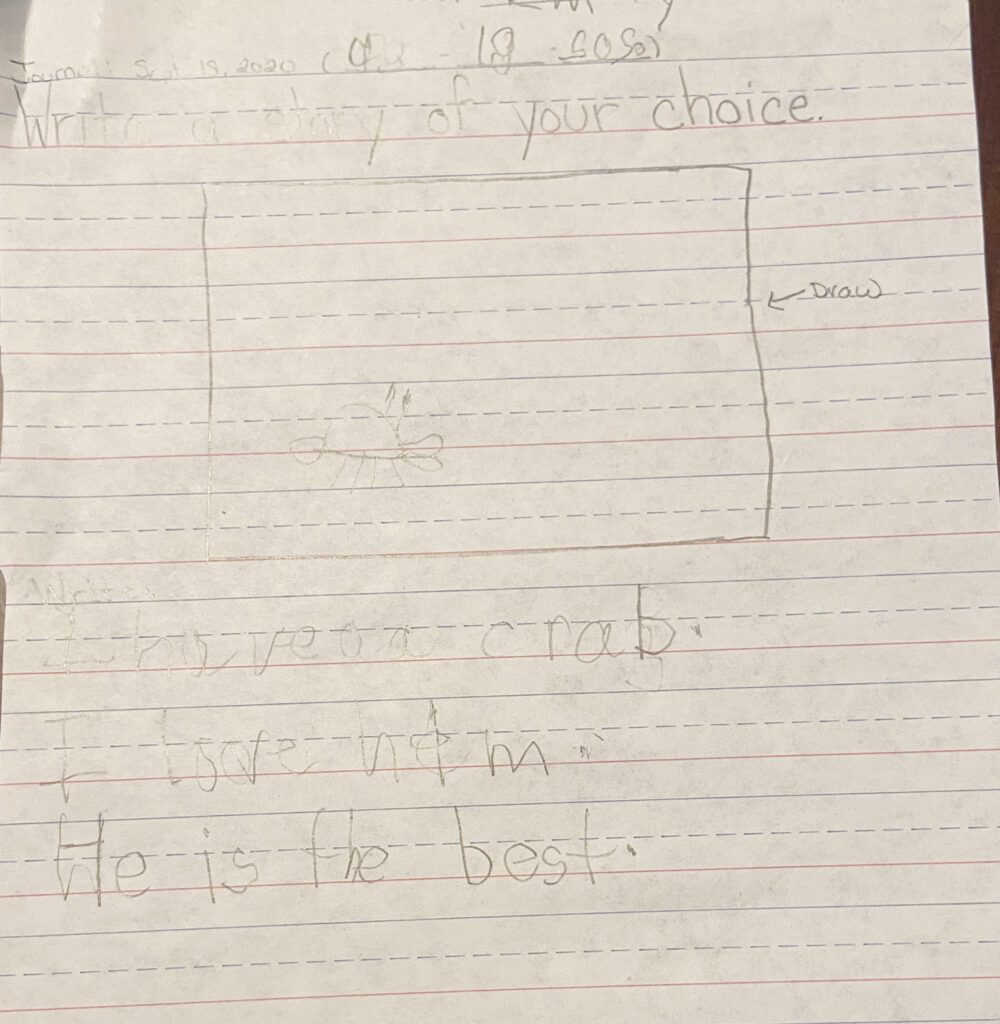 Journal: Sept 18, 2020 (9 - 18 - 2020)
Write a story of your choice.
← Draw
Write:
I have a crab.
I love him.
He is the best.